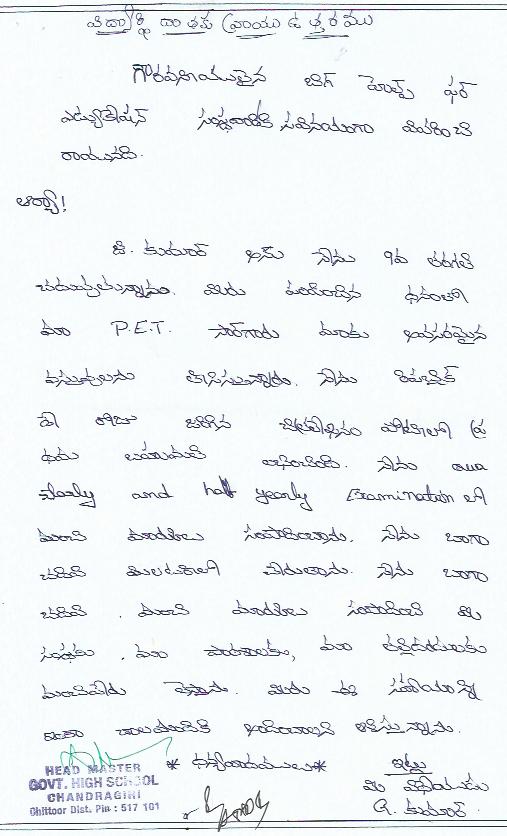 విద్యార్థి దాతకు వ్రాయు ఉత్తరము
గౌరవనీయులైన బిగ్ హెల్ప్ ఫర్
ఎడ్యుకేషన్ సంస్థవారికి సవినయంగా వివరించి
రాయునది.
ఆర్యా!
జి. కుమార్ అను నేను 9వ తరగతి
చదువుచున్నాను. మీరు పంపించిన ధనంతో
మా P.E.T. సార్‌గారు మాకు అవసరమైన
వస్తువులను తీసిస్తున్నారు. నేను రిపబ్లిక్
డే రోజు జరిగిన పోటీలలో ప్ర
థమ బహుమతి నేను
and half yearly Examination లో
మంచి మార్కులు సంపాదించాను. నేను బాగా
చదివి నేను బాగా
చదివి . మంచి మార్కులు సంపాదించి మీ
సంస్థకు . మా పాఠశాలకు, మా తల్లిదండ్రులకు
మంచిపేరు తెస్తాను. మీరు ఈ సహాయాన్ని
ఇంకా చాలామందికి అందించాలని ఆశిస్తున్నాను.
* ధన్యవాదములు *
ఇట్లు
మీ విధేయుడు
G. కుమార్.
HEAD MASTER
GOVT. HIGH SCHOOL
CHANDRAGIRI
Chittoor Dist. Pin : 517 101